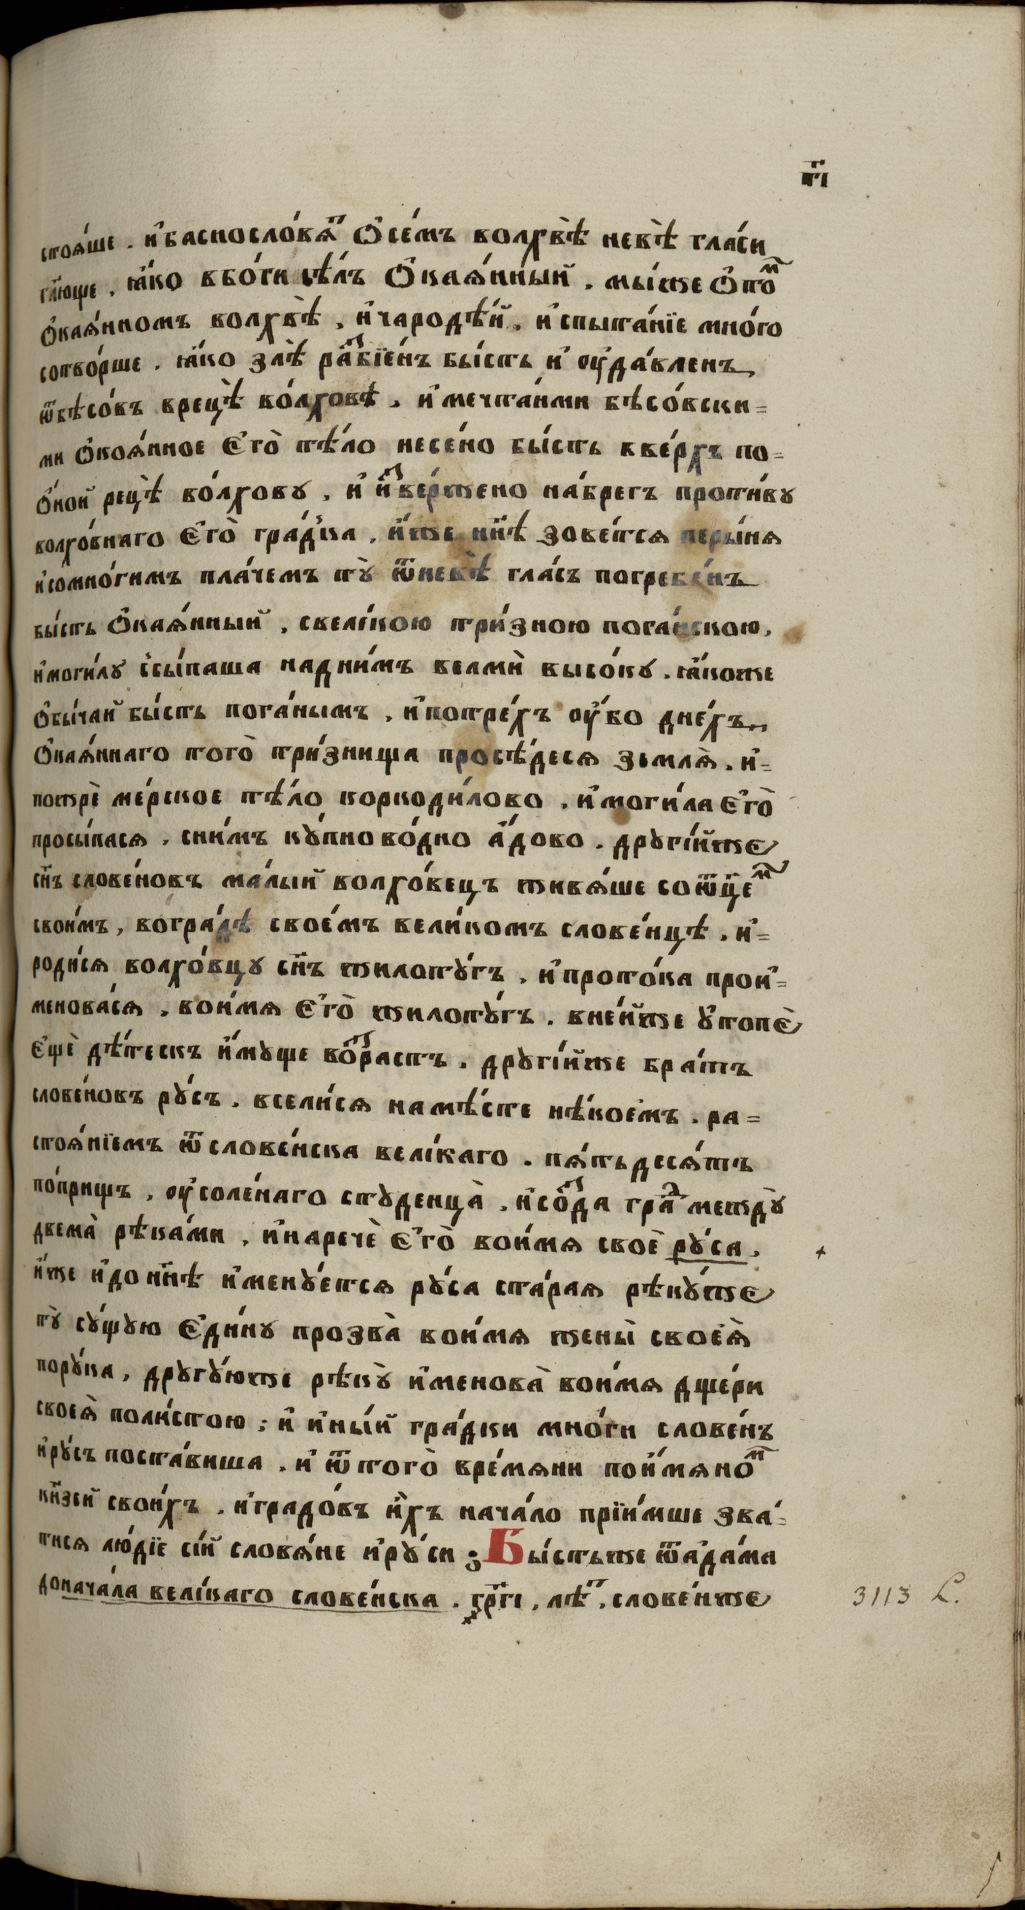 г҃і
стоя́ше . и҆баснословѧ́т ѻ҆се́мъ волхвѣ̀ невѣ́гласи
гл҃юще , ꙗ҆́ко вбо́ги сѣ́лъ ѻ҆каѧ́нный . мы́же ѻ҆то́м
ѻ҆каѧ́нномъ волхвѣ̀ , и҆чародѣ́й , и҆спыта́нїе мно́го
сотво́рше . ꙗ҆́ко злѣ̀ ра́збїе́нъ бы́сть и҆ ᲂу҆да́вленъ
ѿбѣсо́въ врецѣ̀ во́лховѣ . и҆мечта́ньми бѣсо́вски=
ми ѻ҆коѧ́нное є҆го̀ тѣ́ло несе́но бы́сть вве́рхъ по=
ѻ҆́ной рецѣ̀ во́лхову , и҆ и҆зве́ржено на́брегъ проти́ву
волхо́внаго є҆го̀ гра́дка , и҆́же нн҃ѣ зове́тся перы́ня
и҆сомно́гимъ пла́чемъ тꙋ̀ ѿневѣ́гласъ погребе́нъ
бы́сть ѻ҆каѧ́нный , свели́кою три́зною пога́нскою ,
и҆моги́лу ссы́паша надни́мъ велмѝ высо́ку . ꙗ҆́коже
ѻ҆бы́чай бы́сть пога́нымъ , и҆потре́хъ ᲂу҆́бо дне́хъ
ѻ҆каѧ́ннаго того̀ три́знища просѣ́деся земля̀ . и҆=
пожрѐ ме́рское тѣ́ло коркоди́лово . и҆моги́ла є҆го̀
просы́пася , сни́мъ ку́пно во́дно а҆́дово . другі́йже
сн҃ъ слове́новъ ма́лый волхо́вецъ живѧ́ше соѿц҃е́м
свои́мъ , вогра́дѣ свое́мъ вели́комъ слове́нцѣ . и҆=
роди́ся волхо́вцу сн҃ъ жилоту́гъ , и҆прото́ка прои҆=
менова́ся , вои́мя є҆го̀ жилоту́гъ . вне́йже у҆топѐ
є҆щѐ дѣ́тескъ и҆му́ще во́зрастъ . другі́йже бра́тъ
слове́новъ ру́съ . всели́ся намѣ́сте нѣ́коемъ . ра=
стоя́нїемъ ѿслове́нска вели́каго . пѧ́тьдесѧ́тъ
по́прищъ , ᲂу҆соле́наго студенца̀ , и҆со́зда гра́д междꙋ̀
двема̀ рѣка́ми , и҆наречѐ є҆го̀ вои́мя своѐ ру́са .
и҆́же и҆донн҃ѣ и҆мену́ется ру́са ста́рая рѣку́же
тꙋ̀ су́щую є҆ди́ну прозва̀ вои́мя жены̀ своеѧ̀
пору́са , другу́юже рѣкꙋ̀ и҆менова̀ вои́мя дще́ри
своеѧ̀ поли́стою ; и҆ и҆ны́й гра́дки мно́ги слове́нъ
и҆ру́съ поста́виша . и҆ ѿтого̀ вре́мяни поиѧмяно́м
кн҃зей свои́хъ , и҆градо́въ и҆́хъ нача́ло прїи́мше зва́=
тися лю́дїе сі́й словѧ́не и҆ру́си ; Бы́стьже ѿада́ма
донача́ла вели́каго слове́нска . ҂гр҃гі , лѣ́т . слове́нже
3113 L.